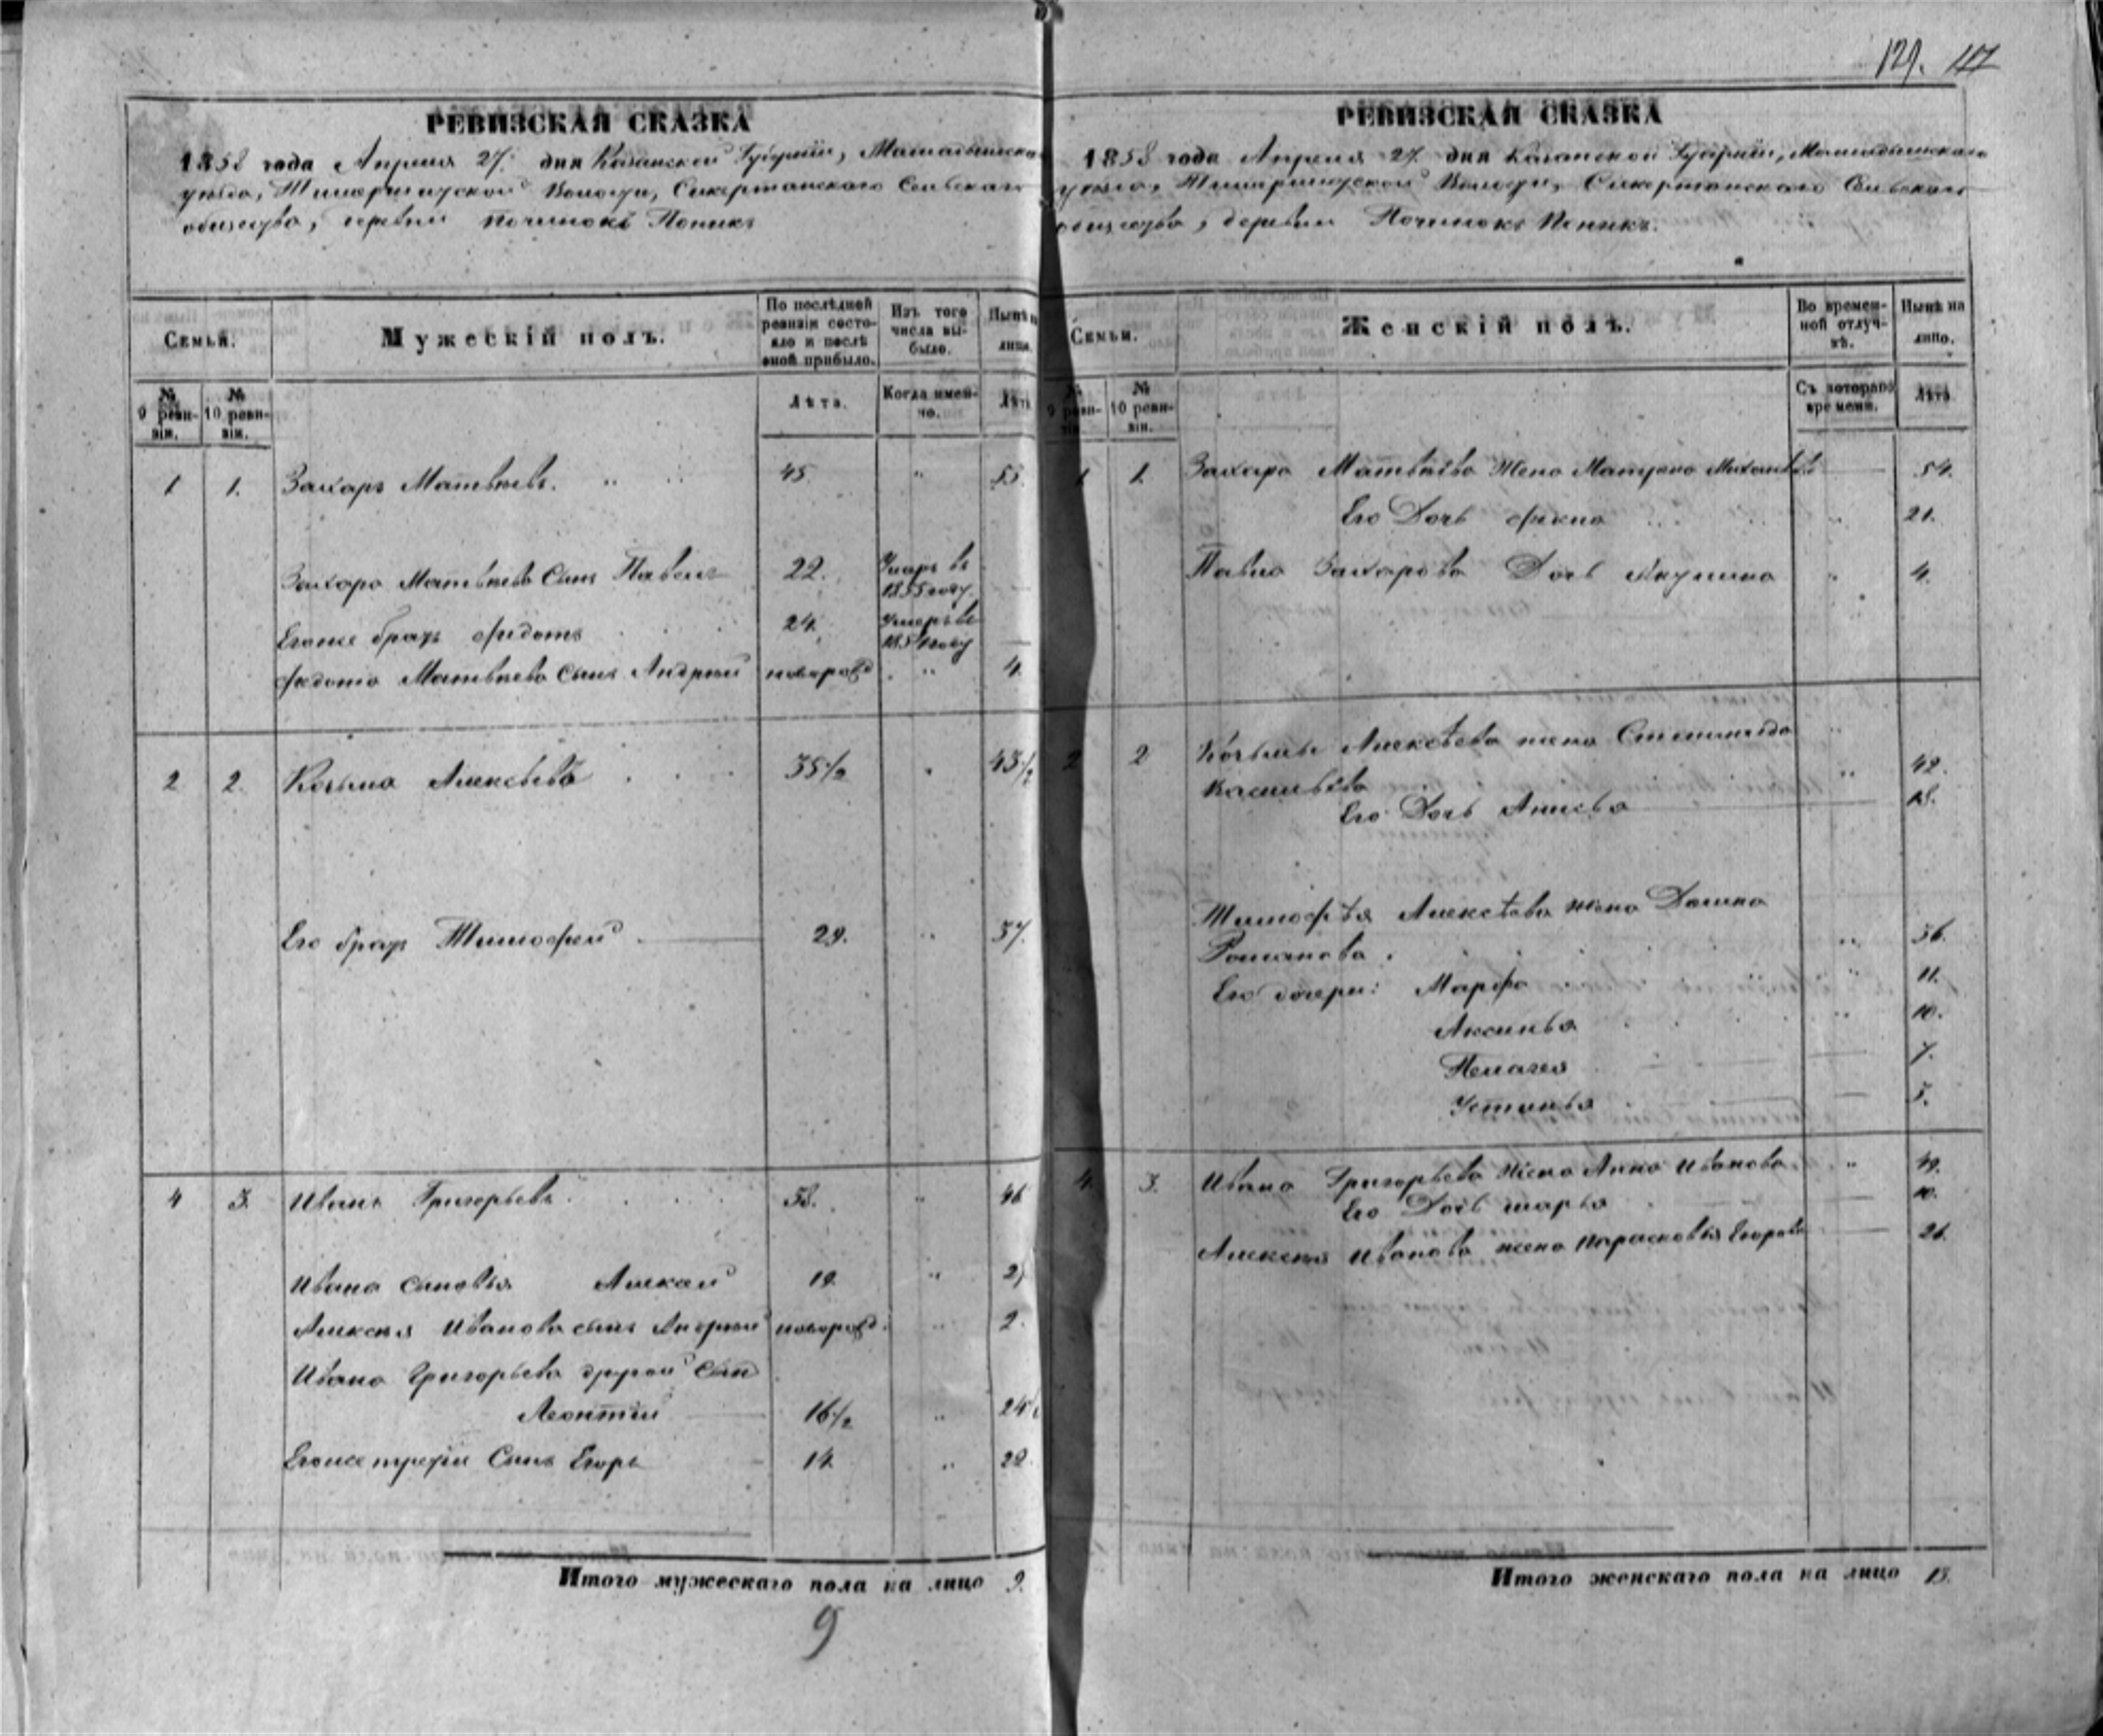 129. 117
РЕВИЗСКАЯ СКАЗКА
1858 года Апреля 27 дня Казанской Губернии, Мамадышскаго
уезда, Волости, Сельскаго
общества, деревни Починокъ
Семьи.
Мужескій полъ.
По послѣдней ревизіи состояло и послѣ оной прибыло.
Изъ того числа выбыло.
Нынѣ на лицо.
№ 9 ревизіи.
№ 10 ревизіи.
Лѣта.
Когда именно.
Лѣта
1 1. Захаръ Матвѣевъ. 45. " 55.
Захара Матвѣева Сынъ Павелъ 22. Умеръ въ
1855 году
Егоже братъ Федотъ 24. Умеръ въ
1854 году
Федота Матвѣева сынъ Андрей новорожд " 4.
2 2. Козьма Алексѣевъ 35 1/2 " 43 1/2
Его братъ Тимофей 29. " 37.
4 3. Иванъ Григорьевъ 38. " 46
Ивана сыновья Алексей 19. "
Алексея Иванова сынъ Андрей новорожд. " 2.
Ивана Григорьева другой сынъ
Леонтий 16 1/2 " 24
Егоже третий Сынъ Егоръ 14. " 22.
Итого мужескаго пола на лицо 9.
9
РЕВИЗСКАЯ СКАЗКА
1858 года Апреля 27 дня Казанской Губернии, Мамадышскаго
уезда, Волости, Сельскаго
общества, деревни Починокъ
Семьи.
Женскій полъ.
Во временной отлучкѣ.
Нынѣ на лицо.
№ 9 ревизіи.
№ 10 ревизіи.
Съ котораго времени.
Лѣта
1 1. Захара Матвѣева Жена Матрена 54.
Его Дочь 21.
Павла Захарова Дочь Акулина " 4.
2 2 Козьмы Алексѣева жена "
Васильева " 42.
Его Дочь 18.
Тимофѣя Алексѣева жена
Романова. " 36.
Его дочери: Марфа " 11.
Аксинья " 10.
Пелагея 7.
Устинья 5.
4. 3. Ивана Григорьева Жена Анна Иванова "
Его Дочь Марья 10.
Алексея Иванова жена Парасковья Егорова
Итого женскаго пола на лицо 13.